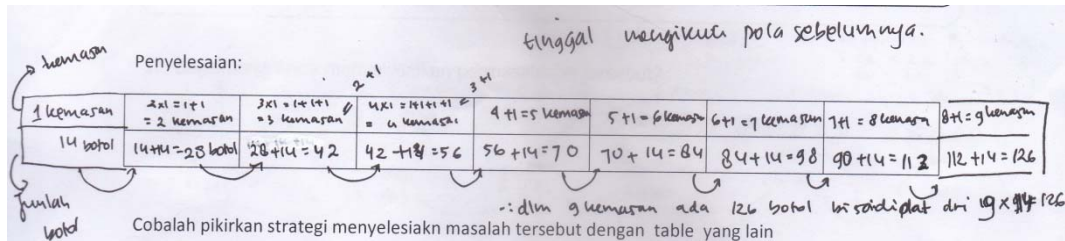 tinggal mengikuti pola sebelumnya.
kemasan
Penyelesaian:
2+1
3+1
1 kemasan
2x1 = 1+1
= 2 kemasan
3x1 = 1+1+1
= 3 kemasan
4x1 = 1+1+1+1
= 4 kemasan
4+1=5 kemasan
5+1=6 kemasan
6+1=7 kemasan
7+1=8 kemasan
8+1=9 kemasan
14 botol
14+14=28 botol
28+14=42
42+14=56
56+14=70
70+14=84
84+14=98
90+14=112
112+14=126
Jumlah
botol
∴ dlm 9 kemasan ada 126 botol bisa didipat dri 9x14=126
Cobalah pikirkan strategi menyelesiakn masalah tersebut dengan table yang lain